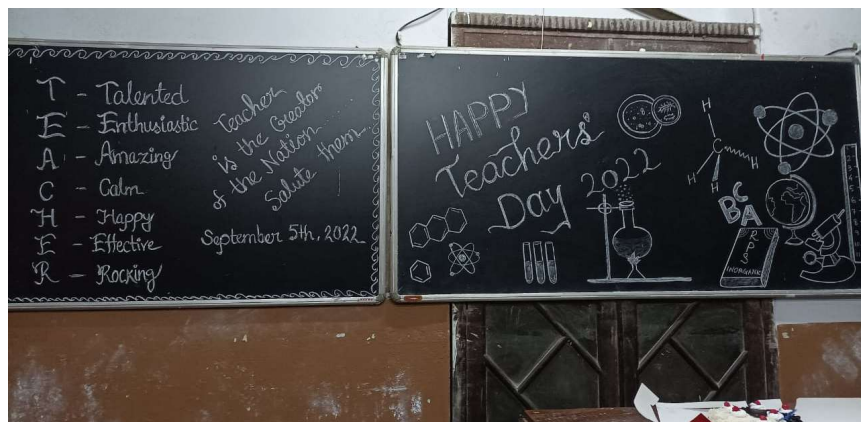 T - Talented
E - Enthusiastic
A - Amazing
C - Calm
H - Happy
E - Effective
R - Rocking
Teacher
is the Creator
of the Nation.....
Salute them...
!
September 5th, 2022
HAPPY
Teachers'
Day 2022
H
C
H
H
H
B C
A
INORGANIC